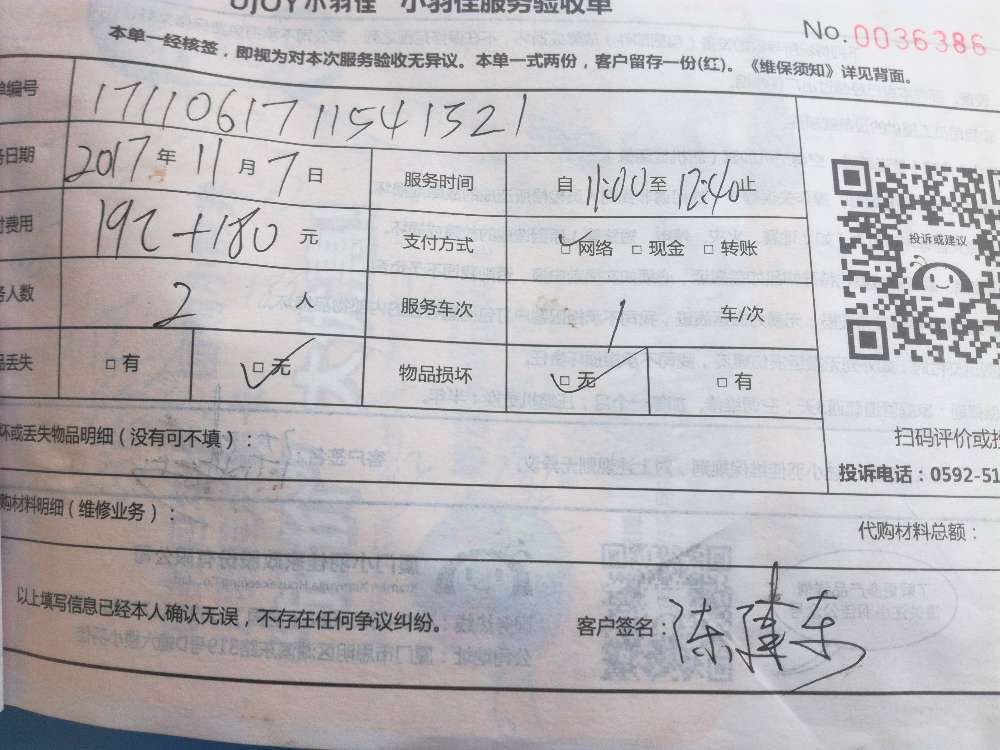 UJOY小羽佳 小羽佳服务验收单
No.0036386
本单一经核签，即视为对本次服务验收无异议。本单一式两份，客户留存一份(红)。《维保须知》详见背面。
单编号 1711061711541321
务日期 2017年11月7日 服务时间 自11:00至12:40止
付费用 192+180元 支付方式 □网络 □现金 □转账
务人数 2 服务车次 1 车/次
品丢失 □有 □无 物品损坏 □无 □有
投诉或建议
坏或丢失物品明细（没有可不填）：
扫码评价或投
投诉电话：0592-51
购材料明细（维修业务）：
代购材料总额：
以上填写信息已经本人确认无误，不存在任何争议纠纷。
客户签名：陈建东